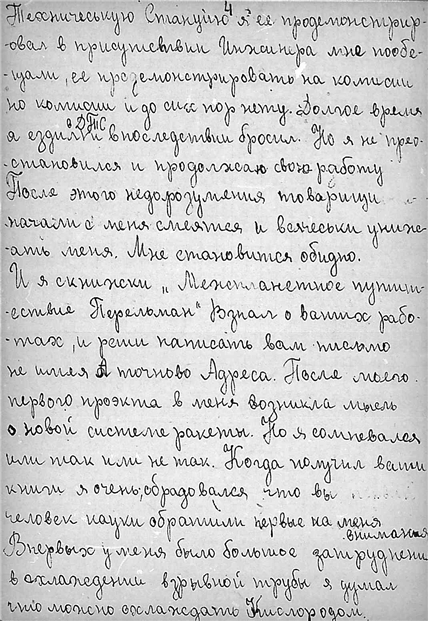 4
Техническую Станцию я ее продемонстриро-
овал в присутствии Инжинера мне пообе-
-щали, ее продемонстрировать на комисии
но комисии и до сих пор нету. Долгое время
я ездил к ДТС в последствии бросил. Но я не прео-
становился и продолжаю свою работу
После этого недорозумения товарищи
начали с меня смеятся и всячески униж-
-ать меня. Мне становится обидно.
И я с книжски „Межпланетное путиш-
ествие Перельман" Взнал о ваших рабо-
-тах, и реши написать вам письмо
не имея А точново Адреса. После моего
первого проэкта в меня возникла мысль
о новой системе ракеты. Но я сомневался
или так или не так. Когда получил ваши
книги я очень, обрадовался что вы
человек науки обратили первые на меня
внимания
Впервых у меня было большое затруднени
в охлаждении взрывной трубы я думал
что можно охлаждать Кислородом.